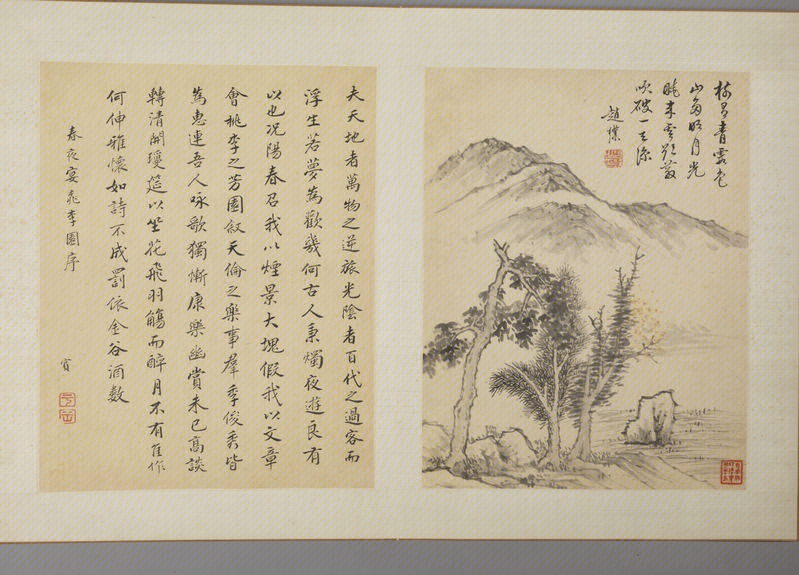 青雲色
山高明月光
吹破一天涼
夫天地者萬物之逆旅光陰者百代之過客而
浮生若夢為歡幾何古人秉燭夜遊良有
以也况陽春召我以煙景大塊假我以文章
會桃李之芳園叙天倫之樂事羣季俊秀皆
為惠連吾人咏歌獨慚康樂幽賞未已高談
轉清開瓊筵以坐花飛羽觴而醉月不有佳作
何伸雅懷如詩不成罰依金谷酒數
春夜宴桃李園序